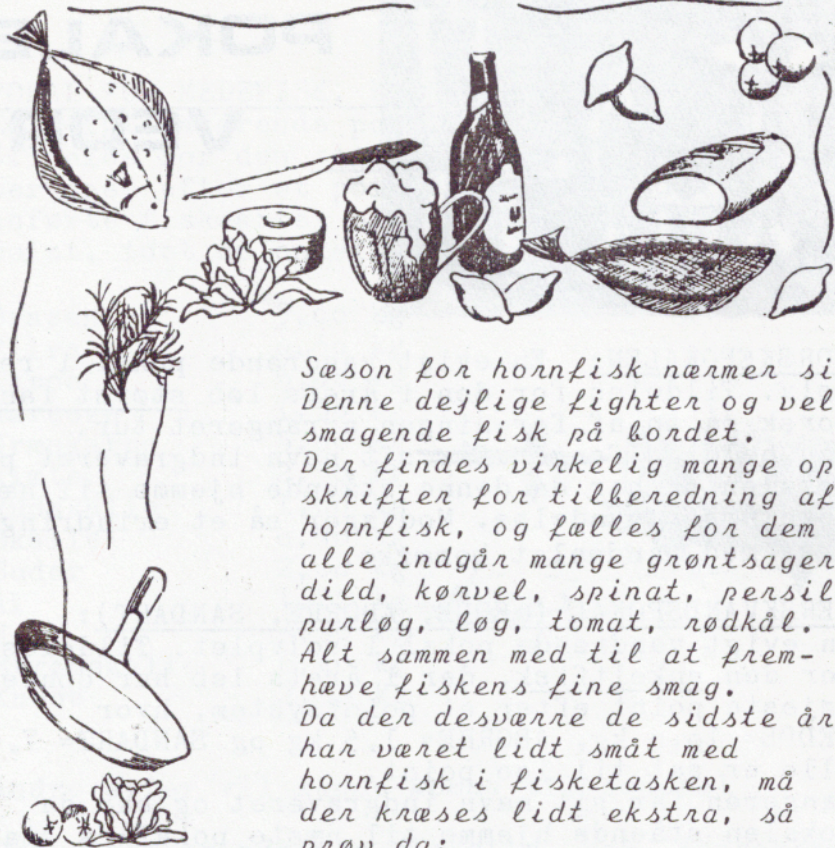 Sæson for hornfisk nærmer si
Denne dejlige fighter og vel
smagende fisk på bordet.
Der findes virkelig mange op
skrifter for tilberedning af
hornfisk, og fælles for dem
alle indgår mange grøntsager
dild, kørvel, spinat, persil
purløg, løg, tomat, rødkål.
Alt sammen med til at frem-
hæve fiskens fine smag.
Da der desværre de sidste år
har været lidt småt med
hornfisk i fisketasken, må
der kræses lidt ekstra, så
prøv da: